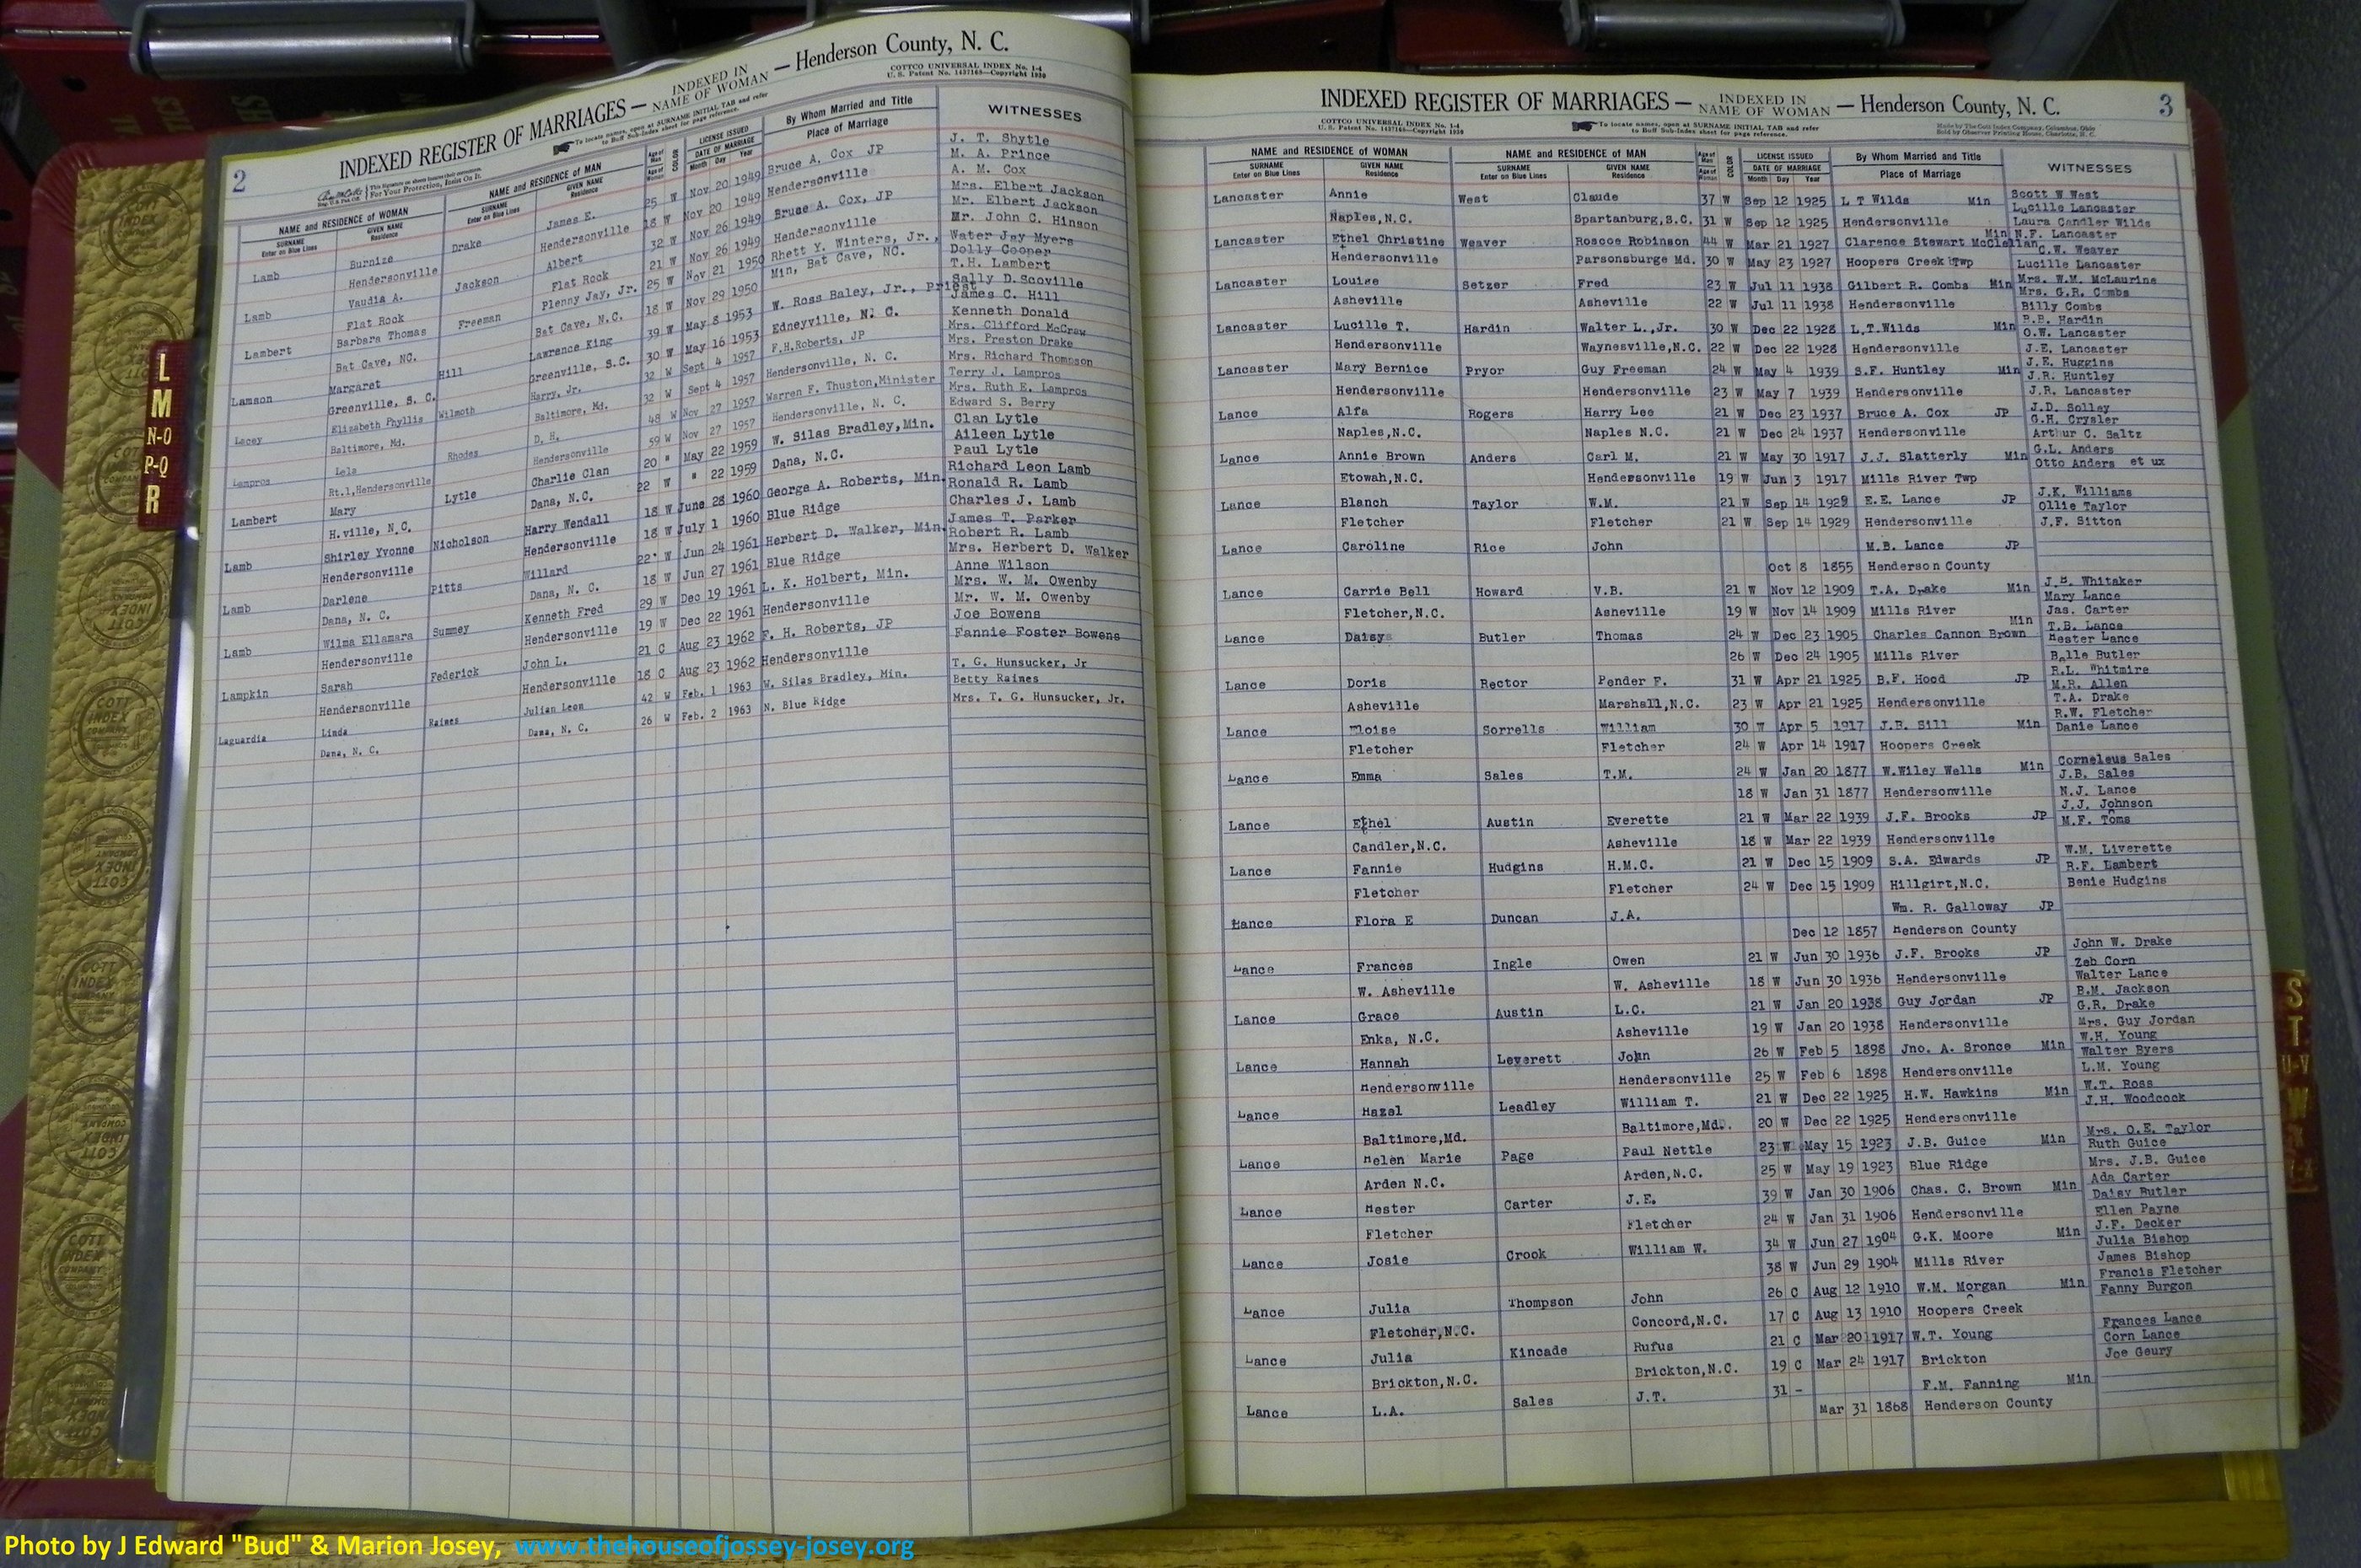 2
INDEXED REGISTER OF MARRIAGES — INDEXED IN NAME OF WOMAN — Henderson County, N. C.
COTTCO UNIVERSAL INDEX No. 1-4
U. S. Patent No. 1437165—Copyright 1930
To locate names, open at SURNAME INITIAL TAB and refer
to Buff Sub-Index sheet for page reference.
For Your Protection, Insist On It.
NAME and RESIDENCE of WOMAN NAME and RESIDENCE of MAN Age of Man COLOR LICENSE ISSUED By Whom Married and Title WITNESSES
SURNAME Enter on Blue Lines GIVEN NAME Residence SURNAME Enter on Blue Lines GIVEN NAME Residence Age of Woman DATE OF MARRIAGE Month Day Year Place of Marriage
Lamb Burnize Drake James E. 25 W Nov 20 1949 Bruce A. Cox JP J. T. Shytle
M. A. Prince
Hendersonville Hendersonville 18 W Nov 20 1949 Hendersonville A. M. Cox
Lamb Vaudia A. Jackson Albert 32 W Nov 26 1949 Bruce A. Cox, JP Mrs. Elbert Jackson
Mr. Elbert Jackson
Flat Rock Flat Rock 21 W Nov 26 1949 Hendersonville Mr. John C. Hinson
Lambert Barbara Thomas Freeman Plenny Jay, Jr. 25 W Nov 21 1950 Rhett Y. Winters, Jr., Water Jay Myers
Dolly Cooper
Bat Cave, NC. Bat Cave, N.C. 18 W Nov 29 1950 Min, Bat Cave, NC. T.H. Lambert
Lamson Margaret Hill Lawrence King 39 W May 8 1953 W. Ross Baley, Jr., priest Sally D. Scoville
James C. Hill
Greenville, S. C. Greenville, S.C. 30 W May 16 1953 Edneyville, N. C. Kenneth Donald
Lacey Elizabeth Phyllis Wilmoth Harry, Jr. 32 W Sept 4 1957 F.H.Roberts, JP Mrs. Clifford McCraw
Mrs. Preston Drake
Baltimore, Md. Baltimore, Md. 32 W Sept 4 1957 Hendersonville, N. C. Mrs. Richard Thompson
Lampros Lela Rhodes D. H. 48 W Nov 27 1957 Warren F. Thuston,Minister Terry J. Lampros
Mrs. Ruth E. Lampros
Rt.1,Hendersonville Hendersonville 59 W Nov 27 1957 Hendersonville, N. C. Edward S. Berry
Lambert Mary Lytle Charlie Clan 20 " May 22 1959 W. Silas Bradley,Min. Clan Lytle
Aileen Lytle
H.ville, N.C. Dana, N.C. 22 W " 22 1959 Dana, N.C. Paul Lytle
Lamb Shirley Yvonne Nicholson Harry Wendall 18 W June 28 1960 George A. Roberts, Min. Richard Leon Lamb
Ronald R. Lamb
Hendersonville Hendersonville 18 W July 1 1960 Blue Ridge Charles J. Lamb
Lamb Darlene Pitts Willard 22 W Jun 24 1961 Herbert D. Walker, Min. James T. Parker
Robert R. Lamb
Dana, N. C. Dana, N. C. 18 W Jun 27 1961 Blue Ridge Mrs. Herbert D. Walker
Lamb Wilma Ellamara Summey Kenneth Fred 29 W Dec 19 1961 L. K. Holbert, Min. Anne Wilson
Mrs. W. M. Owenby
Hendersonville Hendersonville 19 W Dec 22 1961 Hendersonville Mr. W. M. Owenby
Lampkin Sarah Federick John L. 21 C Aug 23 1962 F. H. Roberts, JP Joe Bowens
Fannie Foster Bowens
Hendersonville Hendersonville 18 C Aug 23 1962 Hendersonville
Laguardia Linda Raines Julian Leon 42 W Feb. 1 1963 W. Silas Bradley, Min. T. G. Hunsucker, Jr
Betty Raines
Dana, N. C. Dana, N. C. 26 W Feb. 2 1963 N. Blue Ridge Mrs. T. G. Hunsucker, Jr.
INDEXED REGISTER OF MARRIAGES — INDEXED IN NAME OF WOMAN — Henderson County, N. C. 3
COTTCO UNIVERSAL INDEX No. 1-4
U. S. Patent No. 1437165—Copyright 1930
To locate names, open at SURNAME INITIAL TAB and refer
to Buff Sub-Index sheet for page reference.
Made by The Cott Index Company, Columbus, Ohio
Sold by Observer Printing House, Charlotte, N. C.
NAME and RESIDENCE of WOMAN NAME and RESIDENCE of MAN Age of Man COLOR LICENSE ISSUED By Whom Married and Title WITNESSES
SURNAME Enter on Blue Lines GIVEN NAME Residence SURNAME Enter on Blue Lines GIVEN NAME Residence Age of Woman DATE OF MARRIAGE Month Day Year Place of Marriage
Lancaster Annie West Claude 37 W Sep 12 1925 L T Wilds Min Scott W West
Lucille Lancaster
Naples,N.C. Spartanburg,S.C. 31 W Sep 12 1925 Hendersonville Laura Candler Wilds
Lancaster Ethel Christine Weaver Roscoe Robinson 44 W Mar 21 1927 Clarence Stewart McClellan Min N.F. Lancaster
C.W. Weaver
Hendersonville Parsonsburge Md. 30 W May 23 1927 Hoopers Creek Twp Lucille Lancaster
Lancaster Louise Setzer Fred 23 W Jul 11 1938 Gilbert R. Combs Min Mrs. W.M. McLaurine
Mrs. G.R. Combs
Asheville Asheville 22 W Jul 11 1938 Hendersonville Billy Combs
Lancaster Lucille T. Hardin Walter L.,Jr. 30 W Dec 22 1928 L.T.Wilds Min B.B. Hardin
O.W. Lancaster
Hendersonville Waynesville,N.C. 22 W Dec 22 1928 Hendersonville J.E. Lancaster
Lancaster Mary Bernice Pryor Guy Freeman 24 W May 4 1939 S.F. Huntley Min J.E. Huggins
J.R. Huntley
Hendersonville Hendersonville 23 W May 7 1939 Hendersonville J.R. Lancaster
Lance Alfa Rogers Harry Lee 21 W Dec 23 1937 Bruce A. Cox JP J.D. Solley
G.H. Crysler
Naples,N.C. Naples N.C. 21 W Dec 24 1937 Hendersonville Arthur C. Saltz
Lance Annie Brown Anders Carl M. 21 W May 30 1917 J.J. Slatterly Min G.L. Anders
Otto Anders et ux
Etowah,N.C. Hendersonville 19 W Jun 3 1917 Mills River Twp
Lance Blanch Taylor W.M. 21 W Sep 14 1929 E.E. Lance JP J.K. Williams
Ollie Taylor
Fletcher Fletcher 21 W Sep 14 1929 Hendersonville J.F. Sitton
Lance Caroline Rice John M.B. Lance JP
Oct 8 1855 Henderson County
Lance Carrie Bell Howard V.B. 21 W Nov 12 1909 T.A. Drake Min J.B. Whitaker
Mary Lance
Fletcher,N.C. Asheville 19 W Nov 14 1909 Mills River Jas. Carter
Lance Daisy Butler Thomas 24 W Dec 23 1905 Charles Cannon Brown Min T.B. Lance
Hester Lance
26 W Dec 24 1905 Mills River Belle Butler
Lance Doris Rector Pender F. 31 W Apr 21 1925 B.F. Hood JP R.L. Whitmire
M.R. Allen
Asheville Marshall,N.C. 23 W Apr 21 1925 Hendersonville T.A. Drake
Lance Eloise Sorrells William 30 W Apr 5 1917 J.B. Sill Min R.W. Fletcher
Danie Lance
Fletcher Fletcher 24 W Apr 14 1917 Hoopers Creek
Lance Emma Sales T.M. 24 W Jan 20 1877 W.Wiley Wells Min Corneleus Sales
J.B. Sales
18 W Jan 31 1877 Hendersonville N.J. Lance
Lance Ethel Austin Everette 21 W Mar 22 1939 J.F. Brooks JP J.J. Johnson
M.F. Toms
Candler,N.C. Asheville 18 W Mar 22 1939 Hendersonville
Lance Fannie Hudgins H.M.C. 21 W Dec 15 1909 S.A. Edwards JP W.M. Liverette
R.F. Lambert
Fletcher Fletcher 24 W Dec 15 1909 Hillgirt,N.C. Benie Hudgins
Lance Flora E Duncan J.A. Wm. R. Galloway JP
Dec 12 1857 Henderson County
Lance Frances Ingle Owen 21 W Jun 30 1936 J.F. Brooks JP John W. Drake
Zeb Corn
W. Asheville W. Asheville 18 W Jun 30 1936 Hendersonville Walter Lance
Lance Grace Austin L.C. 21 W Jan 20 1938 Guy Jordan JP B.M. Jackson
G.R. Drake
Enka, N.C. Asheville 19 W Jan 20 1938 Hendersonville Mrs. Guy Jordan
Lance Hannah Leverett John 26 W Feb 5 1898 Jno. A. Sronce Min W.H. Young
Walter Byers
Hendersonville Hendersonville 25 W Feb 6 1898 Hendersonville L.M. Young
Lance Hazel Leadley William T. 21 W Dec 22 1925 H.W. Hawkins Min W.T. Ross
J.H. Woodcock
Baltimore,Md. Baltimore,Md. 20 W Dec 22 1925 Hendersonville
Lance Helen Marie Page Paul Nettle 23 W May 15 1923 J.B. Guice Min Mrs. O.E. Taylor
Ruth Guice
Arden N.C. Arden,N.C. 25 W May 19 1923 Blue Ridge Mrs. J.B. Guice
Lance Hester Carter J.E. 39 W Jan 30 1906 Chas. C. Brown Min Ada Carter
Daisy Butler
Fletcher Fletcher 24 W Jan 31 1906 Hendersonville Ellen Payne
Lance Josie Crook William W. 34 W Jun 27 1904 G.K. Moore Min J.F. Decker
Julia Bishop
38 W Jun 29 1904 Mills River James Bishop
Lance Julia Thompson John 26 C Aug 12 1910 W.M. Morgan Min Francis Fletcher
Fanny Burgon
Fletcher,N.C. Concord,N.C. 17 C Aug 13 1910 Hoopers Creek
Lance Julia Kincade Rufus 21 C Mar 20 1917 W.T. Young Frances Lance
Corn Lance
Brickton,N.C. Brickton,N.C. 19 C Mar 24 1917 Brickton Joe Geury
Lance L.A. Sales J.T. 31 - F.M. Fanning Min
Mar 31 1868 Henderson County
L
M
N-O
P-Q
R
S
T
U-V
W
COTT INDEX COMPANY
Photo by J Edward "Bud" & Marion Josey, www.thehouseofjossey-josey.org